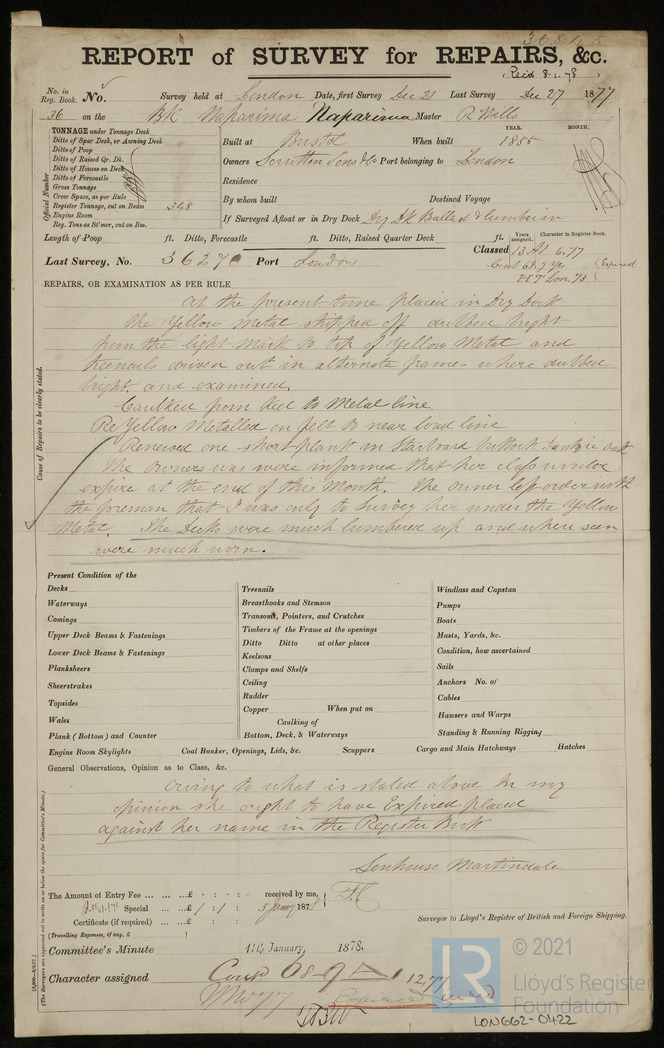 REPORT of SURVEY for REPAIRS, &c.
(Recd 8-1-78)
No. in Reg. Book. No. Survey held at London Date, first Survey Dec 21 Last Survey Dec 27 1877
36 on the BK Naparima Naparima Master R Wills
TONNAGE under Tonnage Deck
Ditto of Spar Deck, or Awning Deck
Ditto of Poop
Ditto of Raised Qr. Dk.
Ditto of Houses on Deck
Ditto of Forecastle
Gross Tonnage
Crew Space, as per Rule
Register Tonnage, cut on Beam 348
Engine Room
Reg. Tons as St'mer, cut on Bm.
Official Number
YEAR. MONTH.
Built at Bristol When built 1855
Owners Scrutton Sons & Co Port belonging to London
Residence
By whom built Destined Voyage
If Surveyed Afloat or in Dry Dock Dry Dk Ballast & lumber in
Length of Poop ft. Ditto, Forecastle ft. Ditto, Raised Quarter Deck ft.
Years assigned. Character in Register Book.
Classed 13 A1 6.77
Last Survey, No. 36270 Port London
Expired
REPAIRS, OR EXAMINATION AS PER RULE
Cause of Repairs to be clearly stated.
At the present time placed in Dry Dock
the Yellow Metal stripped off dubbed bright
from the light mark to top of Yellow Metal and
treenails driven out in alternate frames where dubbed
bright. and examined.
Caulked from Keel to Metal line.
Re Yellow Metalled on felt to near load line
Renewed one short plank in Starboard buttock
the owners was were informed that her class would
expire at the end of this Month. The owner left order with
the foreman that I was only to Survey her under the Yellow
Metal. The Decks were much lumbered up and where seen
were much worn.
Present Condition of the
Decks
Waterways
Comings
Upper Deck Beams & Fastenings
Lower Deck Beams & Fastenings
Planksheers
Sheerstrakes
Topsides
Wales
Plank (Bottom) and Counter
Treenails
Breasthooks and Stemson
Transoms, Pointers, and Crutches
Timbers of the Frame at the openings
Ditto Ditto at other places
Keelsons
Clamps and Shelfs
Ceiling
Rudder
Copper When put on
Caulking of
Bottom, Deck, & Waterways
Windlass and Capstan
Pumps
Boats
Masts, Yards, &c.
Condition, how ascertained
Sails
Anchors No. of
Cables
Hawsers and Warps
Standing & Running Rigging
Engine Room Skylights Coal Bunker, Openings, Lids, &c. Scuppers Cargo and Main Hatchways Hatches
General Observations, Opinion as to Class, &c.
Owing to what is stated above In my
opinion she ought to have Expired placed
against her name in the Register Book
Senhouse Martindale
The Amount of Entry Fee ... ... ...£ : : received by me,
Special ... ...£ 1 : 1 : 5 Jany 1878
Certificate (if required) ... ...£ : :
(Travelling Expenses, if any, £ )
Surveyor to Lloyd's Register of British and Foreign Shipping.
Committee's Minute 11th January, 1878.
Character assigned
Expired
(The Surveyors are requested not to write on or below the space for Committee's Minute.)
© 2021
LR
Lloyd's Register
Foundation
LON662-0422